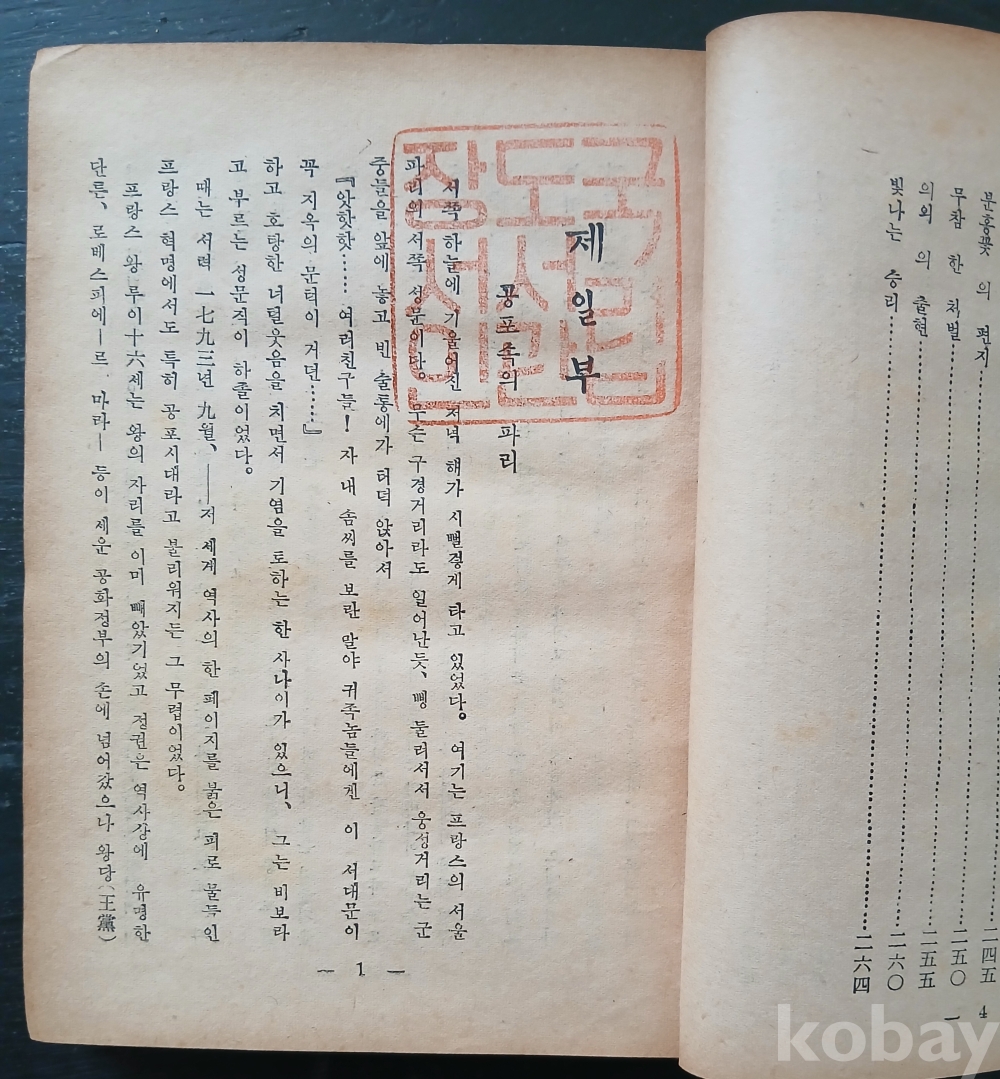 二四五
분홍꽃 의 편지……二五〇
무참 한 처벌……二五五
의외 의 출현……二六〇
빛나는 승리……二六四
4
제 일 부
공포속의 파리
서쪽 하늘에 기울어진 저녁 해가 시뻘겋게 타고 있었다。 여기는 프랑스의 서울
파리의 서쪽 성문이다。 무슨 구경거리라도 일어난듯、 뼁 둘러서서 웅성거리는 군
중들을 앞에 놓고 빈 술통에가 터덕 앉아서
『앗핫핫…… 여러친구들! 자 내 솜씨를 보란 말야 귀족놈들에겐 이 서대문이
꼭 지옥의 문턱이 거던……』
하고 호탕한 너털웃음을 치면서 기염을 토하는 한 사나이가 있으니、 그는 비보라
고 부르는 성문직이 하졸이었다。
때는 서력 一七九三년 九월、――저 세계 역사의 한 페이지를 붉은 피로 물드인
프랑스 혁명에서도 특히 공포시대라고 불리워지든 그 무렵이었다。
프랑스 왕 루이十六세는 왕의 자리를 이미 빼았기었고 정권은 역사상에 유명한
단튼、 로베스피에―르 마라― 등이 세운 공화정부의 손에 넘어갔으나 왕당(王黨)
— 1 —
kobay